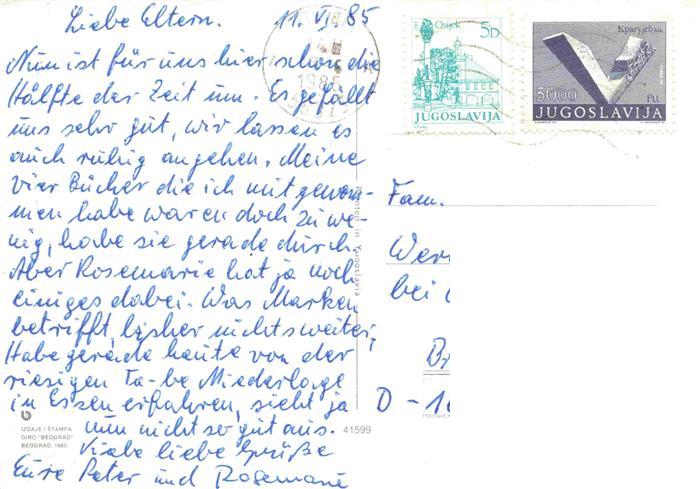 Liebe Eltern. 11. VI. 85
Nun ist für uns hier schon die
Hälfte der Zeit um. Es gefällt
uns sehr gut, wir lassen es
auch ruhig angehen. Meine
vier Bücher die ich mitgenom-
men habe waren doch zu we-
nig, habe sie gerade durch.
Aber Rosemarie hat ja noch
einiges dabei. Was Marken
betrifft, bisher nichts weiter,
Habe gerade heute von der
riesigen Ta-be Niederlage
in Essen erfahren, sieht ja
nun nicht so gut aus.
Viele liebe Grüße
Eure Peter und Rosemarie
Osijek 5D
JUGOSLAVIJA
Крагујевац
50.00 Pu
JUGOSLAVIJA
1985
Fam.
Wer
bei
Br
D - 1
Printed in Yugoslavia
IZDAJE I ŠTAMPA
GIRO "BEOGRAD"
BEOGRAD, 1985.
41599